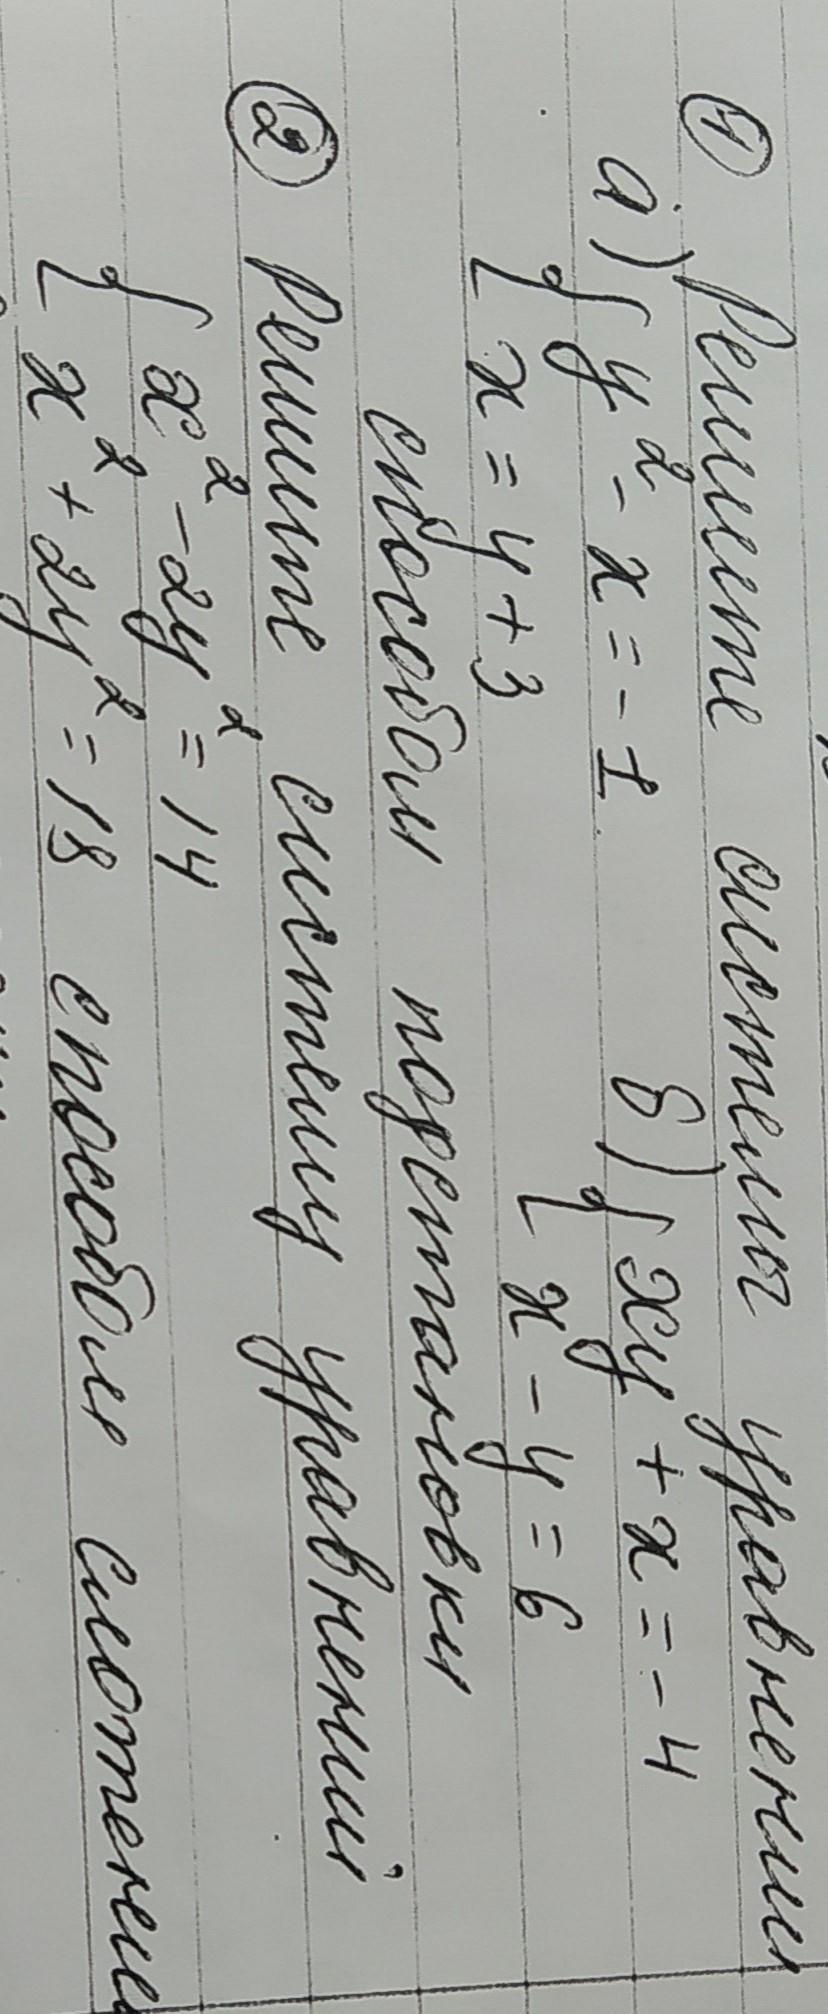 ① Решите системы уравнений
а) { y² - x = -1 б) { xy + x = -4
x = y + 3 x - y = 6
способом подстановки
② Решите систему уравнений
{ x² - 2y² = 14
x² + 2y² = 18 способом сложения